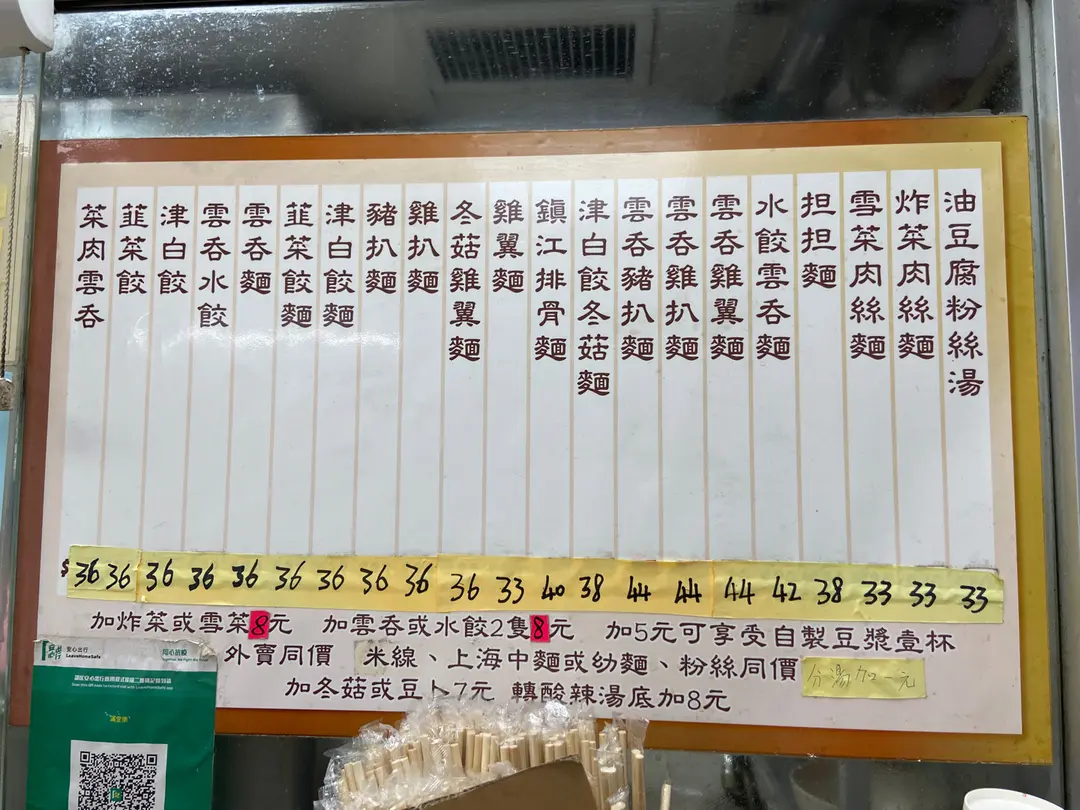 菜肉雲吞
韮菜餃
津白餃
雲吞水餃
雲吞麵
韮菜餃麵
津白餃麵
豬扒麵
雞扒麵
冬菇雞翼麵
雞翼麵
鎮江排骨麵
津白餃冬菇麵
雲吞豬扒麵
雲吞雞扒麵
雲吞雞翼麵
水餃雲吞麵
担担麵
雪菜肉絲麵
炸菜肉絲麵
油豆腐粉絲湯
$ 36 36 36 36 36 36 36 36 36 36 33 40 38 44 44 44 42 38 33 33 33
加炸菜或雪菜8元 加雲吞或水餃2隻8元 加5元可享受自製豆漿壹杯
外賣同價 米線、上海中麵或幼麵、粉絲同價 分湯加一元
加冬菇或豆卜7元 轉酸辣湯底加8元
安心出行
LeaveHomeSafe
同心抗疫